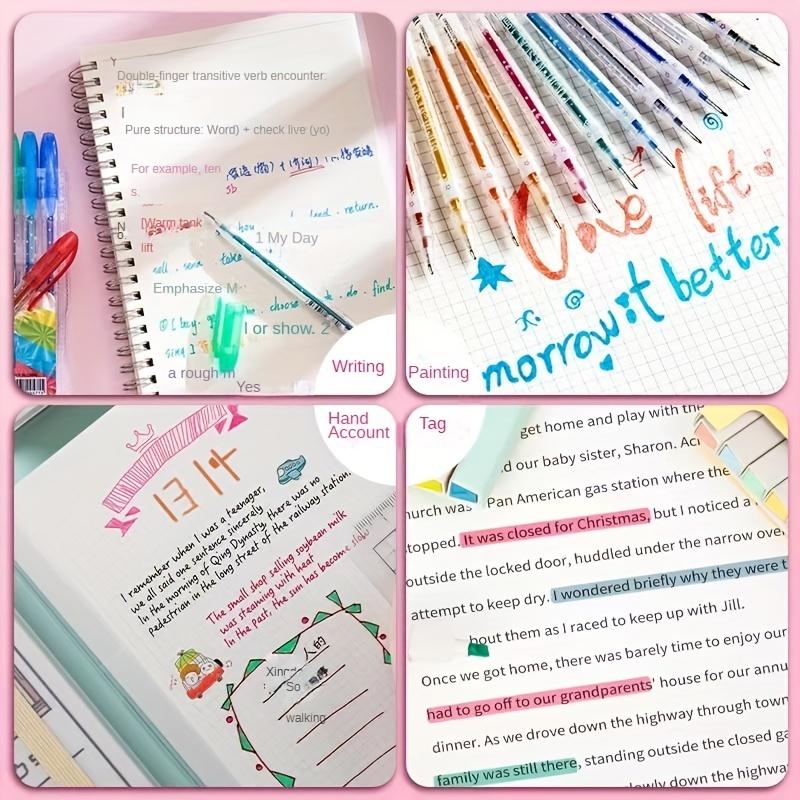 Double-finger transitive verb encounter:
Pure structure: Word) + check live (yo)
For example, ten
s.
sb
[Warm tank
lift
No
hou
lend. return.
1 My Day
sell. send take
Emphasize M
choose do. find.
I or show. 2
sing]
a rough m
Yes
Writing
Love list
morrow it better
Painting
Hand
Account
I remember when I was a teenager,
we all said one sentence sincerely
In the morning of Qing Dynasty, there was no
pedestrian in the long street of the railway station.
The small shop selling soybean milk
was steaming with heat
In the past, the sun has become slow
人的
So
walking
Tag
get home and play with the
d our baby sister, Sharon.
hurch was Pan American gas station where the
stopped. It was closed for Christmas, but I noticed a
outside the locked door, huddled under the narrow ove
attempt to keep dry. I wondered briefly why they were t
bout them as I raced to keep up with Jill.
Once we got home, there was barely time to enjoy our
had to go off to our grandparents' house for our annu
dinner. As we drove down the highway through town
family was still there, standing outside the closed ga
slowly down the highway